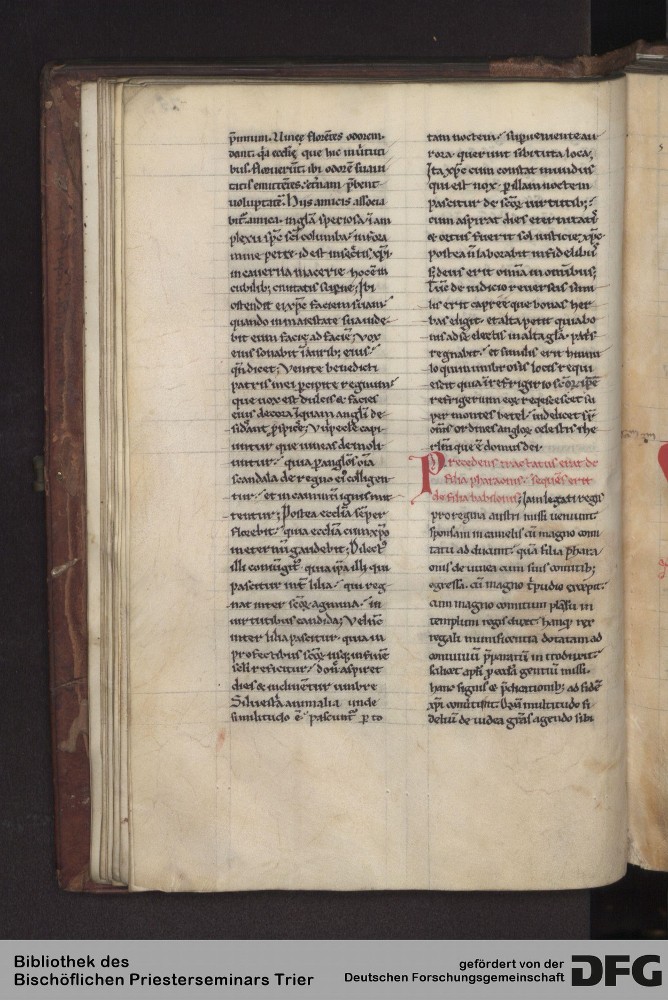 p̄mium. Vineę florentes odorem
dant. q̄a ecclę que hic in uirtuti
bus floruerūt. ibi odorē suaui
tatis emittentes. et̄nam p̄bent
uoluptatē. Hijs amicis associa
bit amica. in gl̄a speciosa. in am
plexu sp̄c sc̄i columba. in fora
mine petre. id est in
in cauerna macerie. hoc ē in
ciuitatis supne. Ibi
ostendit ei xp̄c faciem suam.
quando in maiestate sua uide
bit eum facie ad faciē. Vox
eius sonabit in auribus eius.
qn̄ dicet. Venite benedicti
patris mei percipite regnum.
que uox est dulcis. & facies
eius decora in quam angl̄i de
Vulpeclę capi
untur que uineas demoli
untur. quia p angl̄os om̄ia
scandala de regno ei colligen
tur. et in caminū ignis mit
tentur. Postea ecclia semper
florebit. quia ecclia cum xp̄o
gaudebit. Dilectꝰ
illi quia ip̄a illi qui
pascitur int̄ lilia. qui reg
nat inter scōꝝ agmina. in
uirtutibus candida. Vel nūc
inter lilia pascitur. quia in
profectibus scōꝝ usq; in finē
scl̄i reficitur. donec aspiret
dies & inclinentur umbre
Siluestria animalia unde
similitudo ē. pascuntꝰ p to
tam noctem. superueniente au
rora querunt sibi tuta loca.
Ita xp̄c cum constat mundus
qui est nox. p illam noctem
pascitur de scōꝝ uirtutib;.
cum aspirat dies eternitatis
& ortus fuerit sol iusticie. xp̄c
postea ñ laborabit in fidelibꝰ
s; deus erit omnia in omnibus.
Tunc de iudicio reuersus simi
lis erit capreę que bonas her
bas eligit. et alta petit. quia bo
nos ad se electos in alta gl̄a patris
regnabit. et similis erit hinnu
lo qui in umbrosis locis requi
escit. quia in refrigerio scōꝝ ip̄e
refrigerium eoꝝ requiescet su
per montes betel. uidelicet sup
om̄s ordines angloꝝ celestis ihe
rl̄m que ē domus dei.
Precedens tractatus erat de
filia pharaonis. sequens erit
de filia babilonis. Iam legati regis
pro regina austri missi ueniunt
sponsam in camelis cū magno comi
tatu adducunt. quā filia phara
onis de uinea cum suis comitib;
egressa. cū magno tripudio excepit.
cum magno comitum plausu in
templum regis duxit. hancq; rex
regali munificentia dotatam ad
conuiuiū p̄paratū introduxit.
scilicet apl̄i p eccl̄a gentiū missi.
hanc signis & p̄dicationib; ad fidē
xp̄i conuertunt. Quā multitudo fi
deliū de iudea gr̄as agendo sibi
Bibliothek des
Bischöflichen Priesterseminars Trier
gefördert von der
Deutschen Forschungsgemeinschaft
DFG